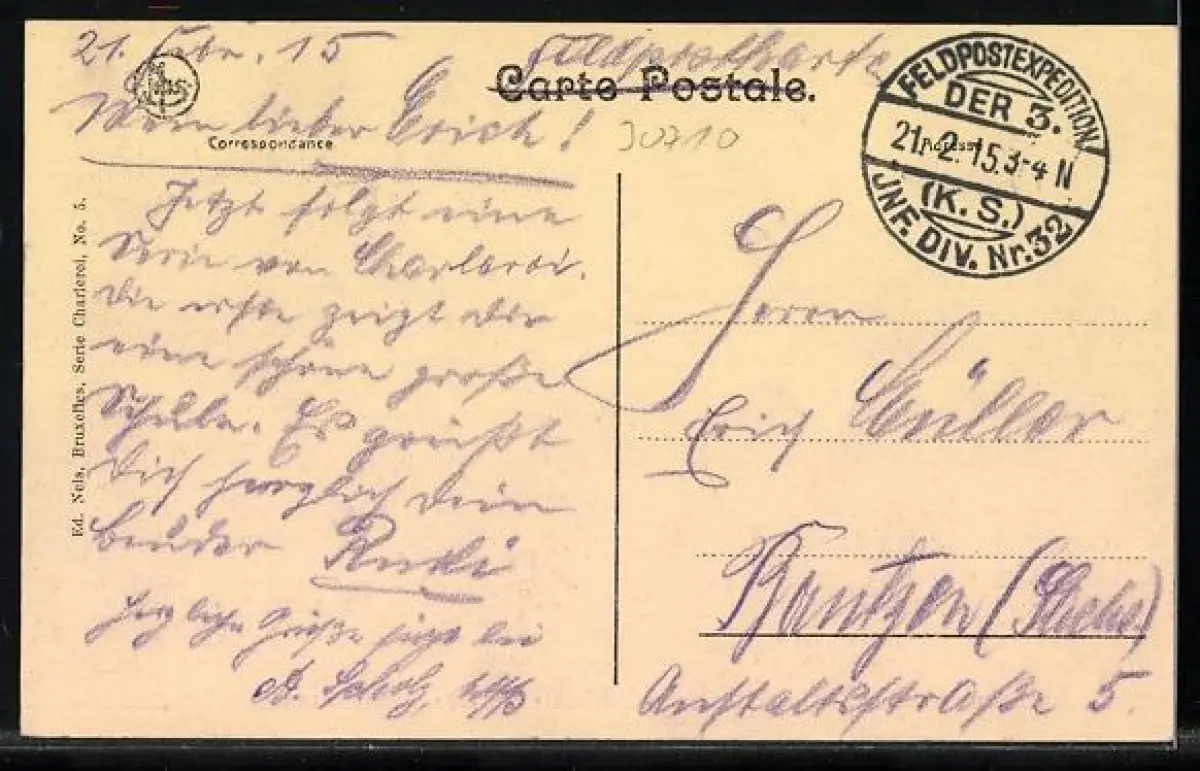 21. Febr. 15
Feldpostkarte
Carte Postale.
Mein lieber Erich!
Correspondance
30710
Jetzt folgt eine
Serie von Charleroi.
Die erste zeigt Dir
eine schöne große
Schule. Es grüßt
Dich herzlich Dein
Bruder Rudi
Herzliche Grüße fügt bei
A. Scholz,
Ed. Nels, Bruxelles, Serie Charleroi, No. 5.
FELDPOSTEXPEDITION
DER 3.
21. 2. 15. 3-4 N
(K. S.)
JNF. DIV. Nr. 32
Herrn
Erich Müller
Bautzen (Sachs.)
Anstaltsstraße 5.